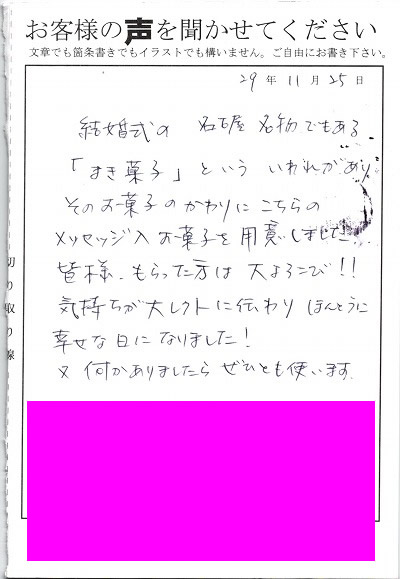 お客様の声を聞かせてください
文章でも箇条書きでもイラストでも構いません。ご自由にお書き下さい。
29年11月25日
結婚式の 名古屋名物でもある
「まき菓子」という いわれがあり
そのお菓子のかわりにこちらの
メッセージ入お菓子を用意しました
皆様、もらった方は大よろこび!!
気持ちが大レクトに伝わり ほんとうに
幸せな日になりました!
又 何かありましたら ぜひとも使います。
切り取り線